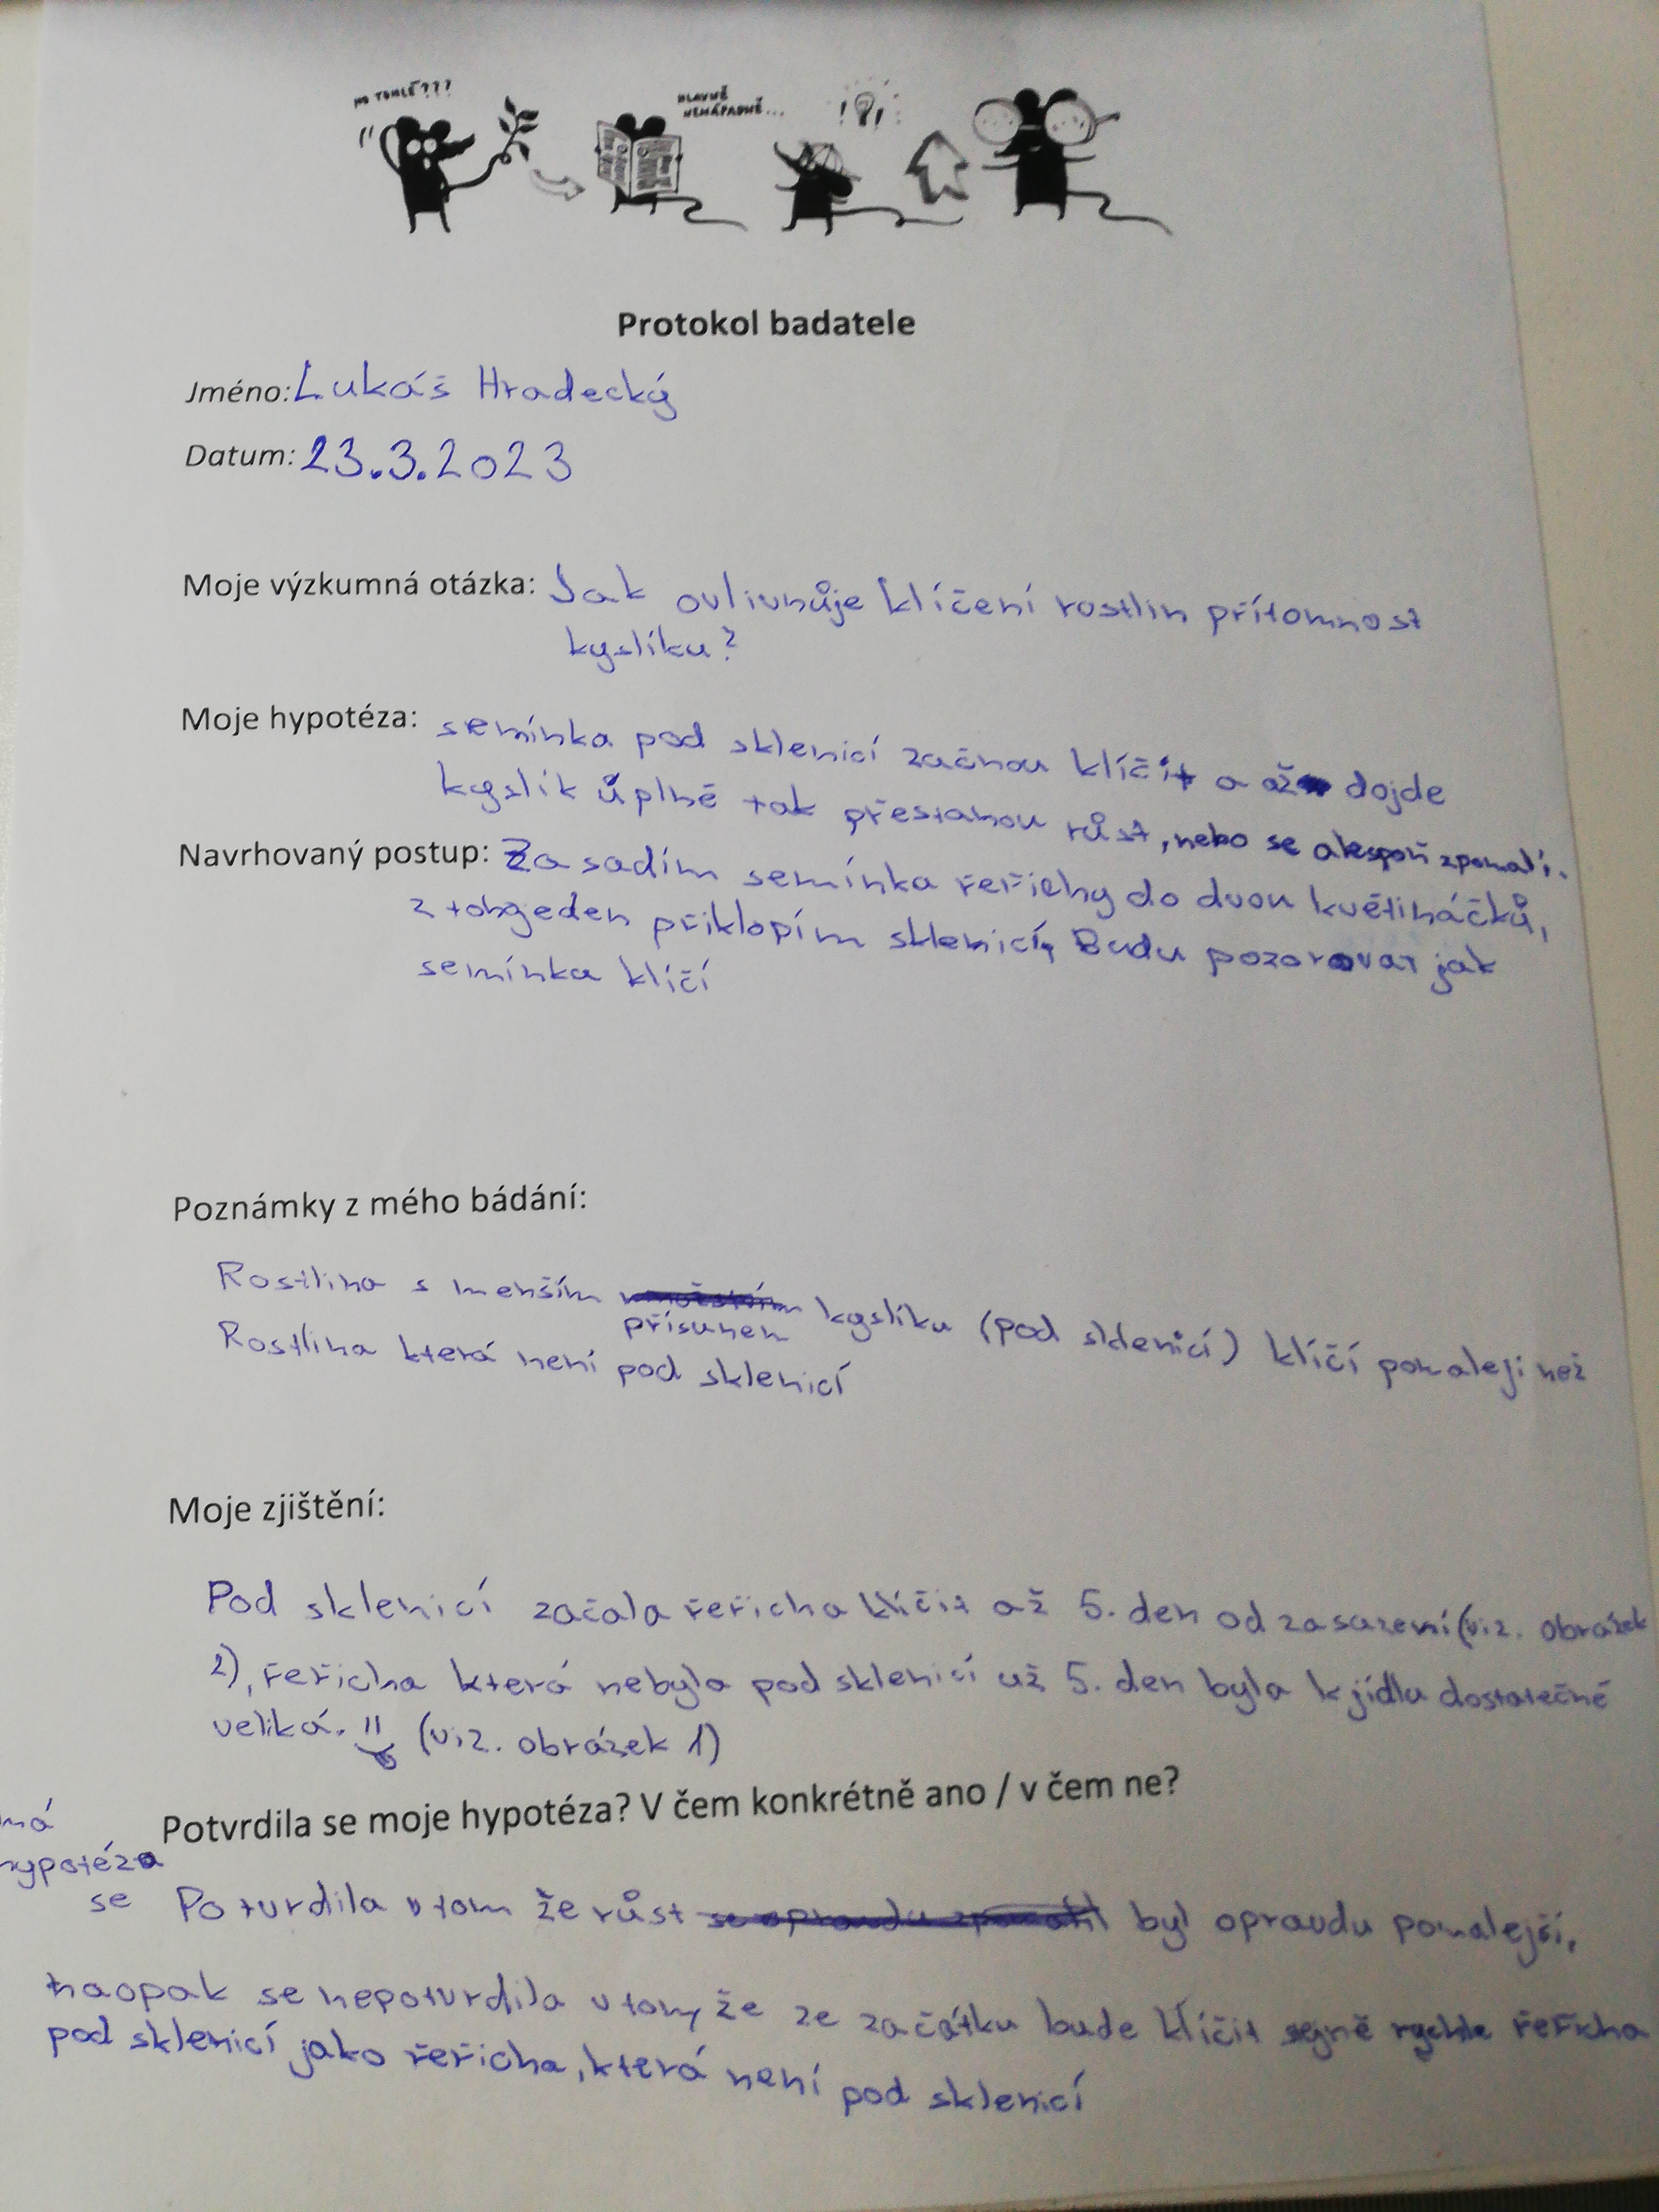 NO TOHLE???
HLAVNĚ
NENÁPADNĚ...
!?!
Protokol badatele
Jméno: Lukáš Hradecký
Datum: 23.3.2023
Moje výzkumná otázka: Jak ovlivnůje klíčení rostlin přítomnost
kyslíku?
Moje hypotéza: semínka pod sklenicí začnou klíčit a až dojde
kyslík úplně tak přestanou růst, nebo se alespoň zpomalí.
Navrhovaný postup: Zasadím semínka řeřichy do dvou květináčků,
z toho jeden přiklopím sklenicí, Budu pozorovat jak
semínka klíčí
Poznámky z mého bádání:
Rostlina s menším přísunem kyslíku (pod sklenicí) klíčí pomaleji než
Rostlina která není pod sklenicí
Moje zjištění:
Pod sklenicí začala řeřicha klíčit až 5. den od zasazení (viz. obrázek
2), řeřicha která nebyla pod sklenicí už 5. den byla k jídlu dostatečně
veliká. (viz. obrázek 1)
Potvrdila se moje hypotéza? V čem konkrétně ano / v čem ne?
má
hypotéza
se Potvrdila v tom že růst byl opravdu pomalejší,
naopak se nepotvrdila v tom, že ze začátku bude klíčit stejně rychle řeřicha
pod sklenicí jako řeřicha, která není pod sklenicí